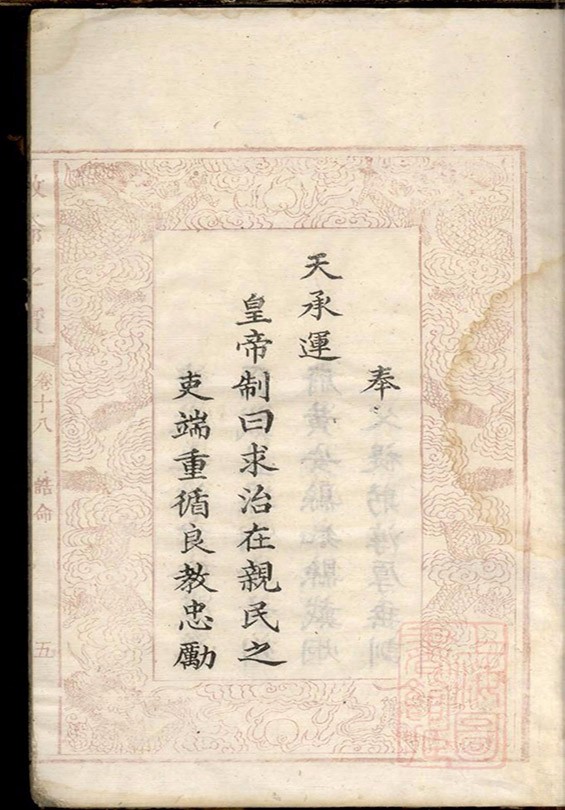 奉
天承運
皇帝制曰求治在親民之
吏端重循良教忠勵
卷十八
誥命
五